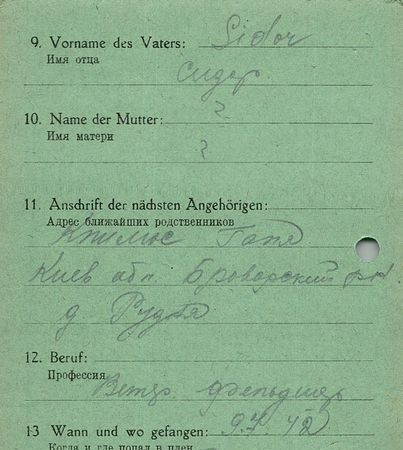 9. Vorname des Vaters: Sidor
Имя отца
Сидор
10. Name der Mutter: ?
Имя матери
?
11. Anschrift der nächsten Angehörigen:
Адрес ближайших родственников
Катя
Киев обл. Броварский р-н
д Рудня
12. Beruf:
Профессия
Ветер. фельдшер
13 Wann und wo gefangen: 9.7. 42
Когда и где попал в плен